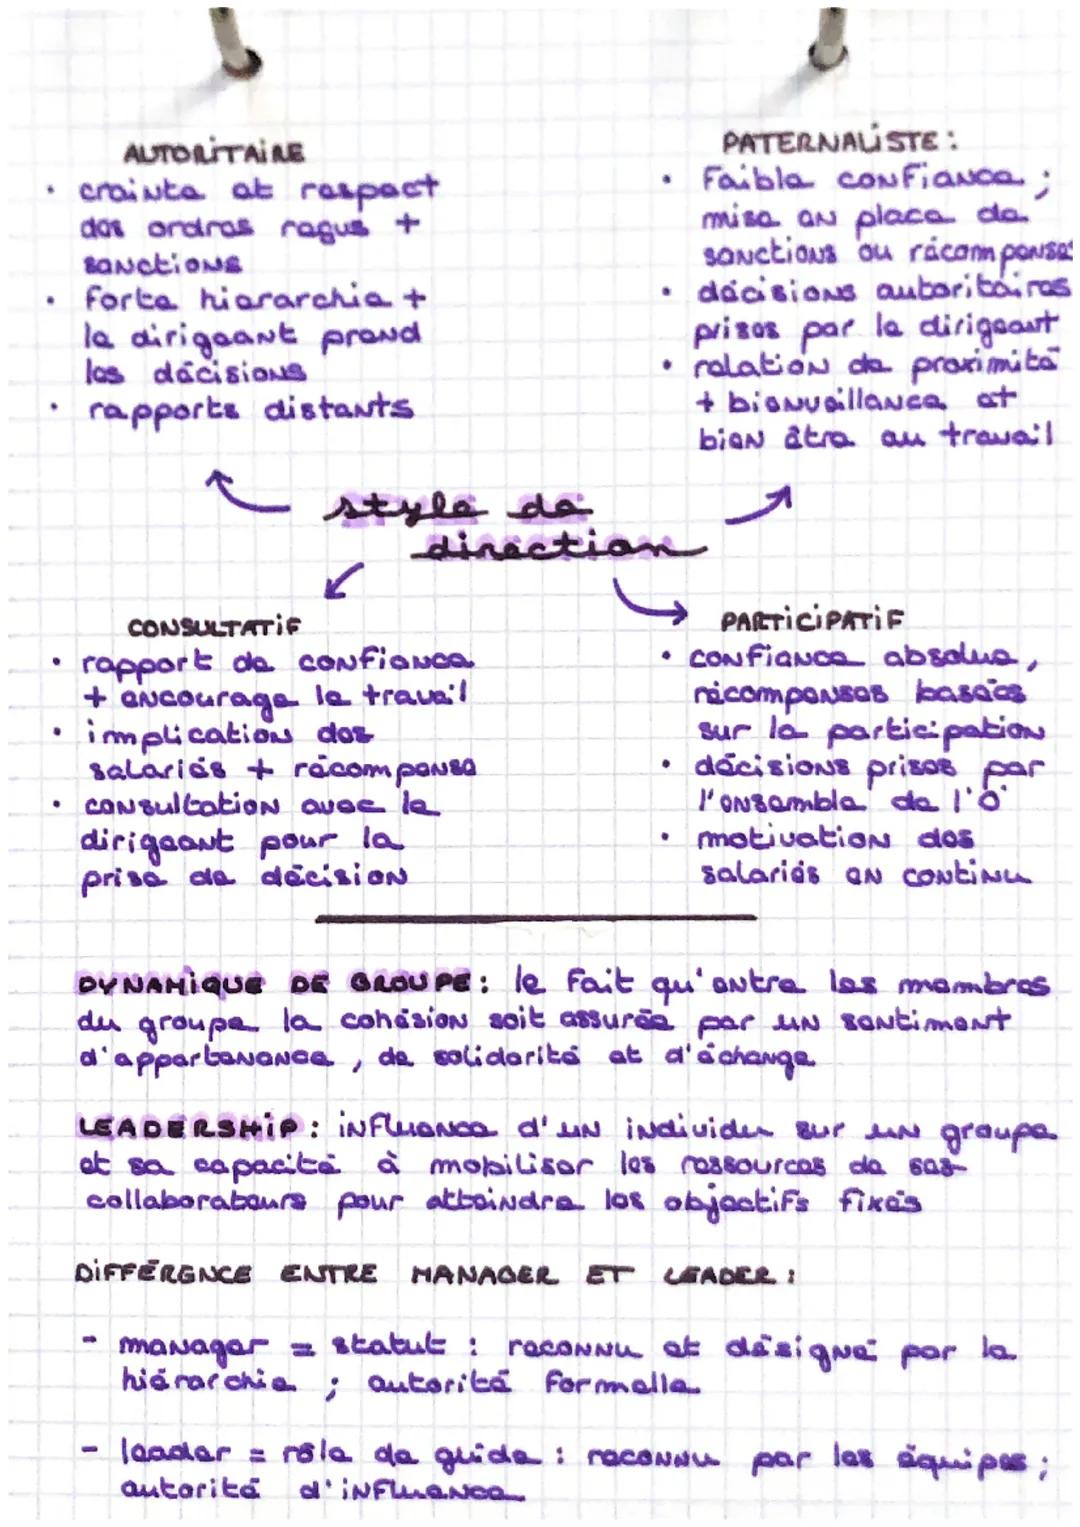 AUTORITAIRE
• crainte et respect
des ordres reçus +
sanctions
• forte hierarchie +
le dirigeant prend
les décisions
• rapports distants
PATERNALISTE :
• Faible confiance ;
mise en place de
sanctions ou récompenses
• décisions autoritaires
prises par le dirigeant
• relation de proximité
+ bienveillance et
bien être au travail
style de
direction
CONSULTATIF
• rapport de confiance
+ encourage le travail
• implication des
salariés + récompense
• consultation avec le
dirigeant pour la
prise de décision
PARTICIPATIF
• confiance absolue,
récompenses basées
sur la participation
• décisions prises par
l'ensemble de l'O°
• motivation des
salariés en continu
DYNAMIQUE DE GROUPE : le fait qu'entre les membres
du groupe la cohésion soit assurée par un sentiment
d'appartenance, de solidarité et d'échange
LEADERSHIP : influence d'un individu sur un groupe
et sa capacité à mobiliser les ressources de ses
collaborateurs pour atteindre les objectifs fixés
DIFFÉRENCE ENTRE MANAGER ET LEADER :
- manager = statut : reconnu et désigné par la
hiérarchie ; autorité formelle
- leader = rôle de guide : reconnu par les équipes ;
autorité d'influence